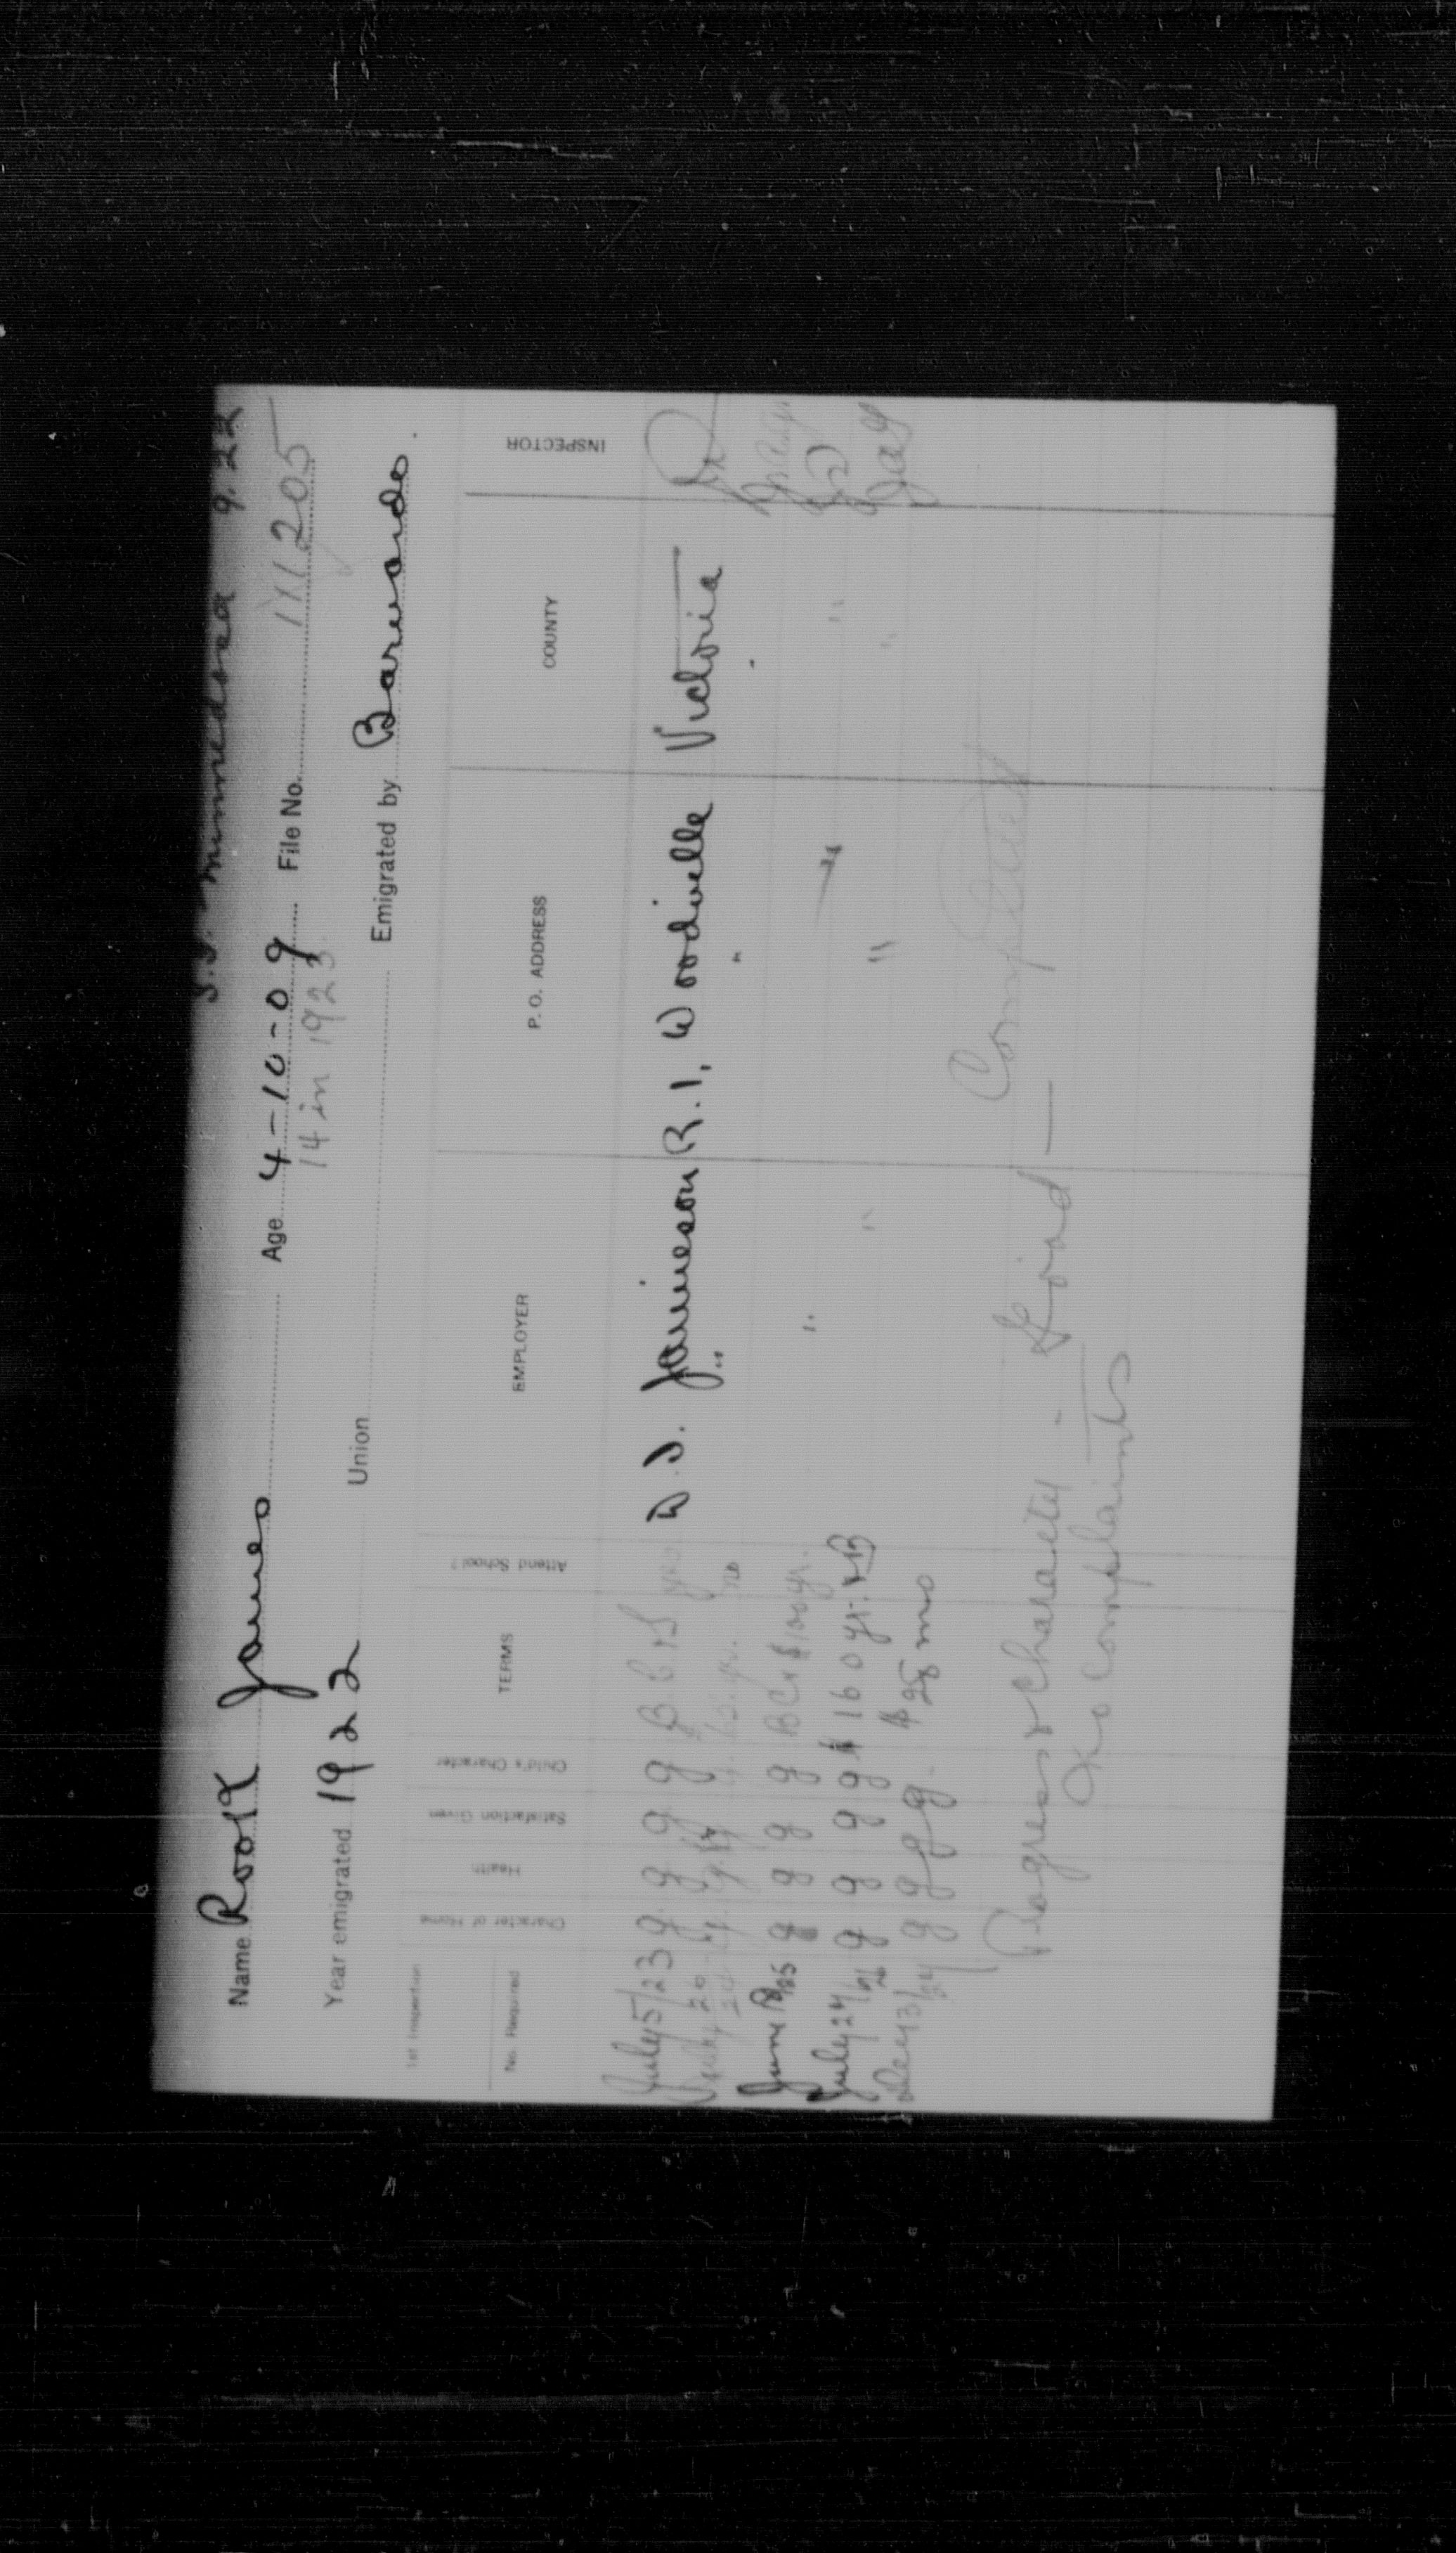 S.S. Minnedosa 9.22
Name Rook James Age 4-10-09 File No. 111205
14 in 1923
Year emigrated 1922 Union Emigrated by Barnardo.
1st Inspection
No. Required Character of Home Health Satisfaction Given Child's Character TERMS Attend School? EMPLOYER P. O. ADDRESS COUNTY INSPECTOR
July 5/23 g g g g B C & S yes D. J. Jamieson R. 1, Woodville Victoria
July 20 yr. no " "
June 18/25 g g g g B C & $100 yr. "
July 24/26 g g g g $160 yr. & B " "
Dec 13/27 g g g g $25 mo "
Completed
Progress & Character - Good —
No Complaints